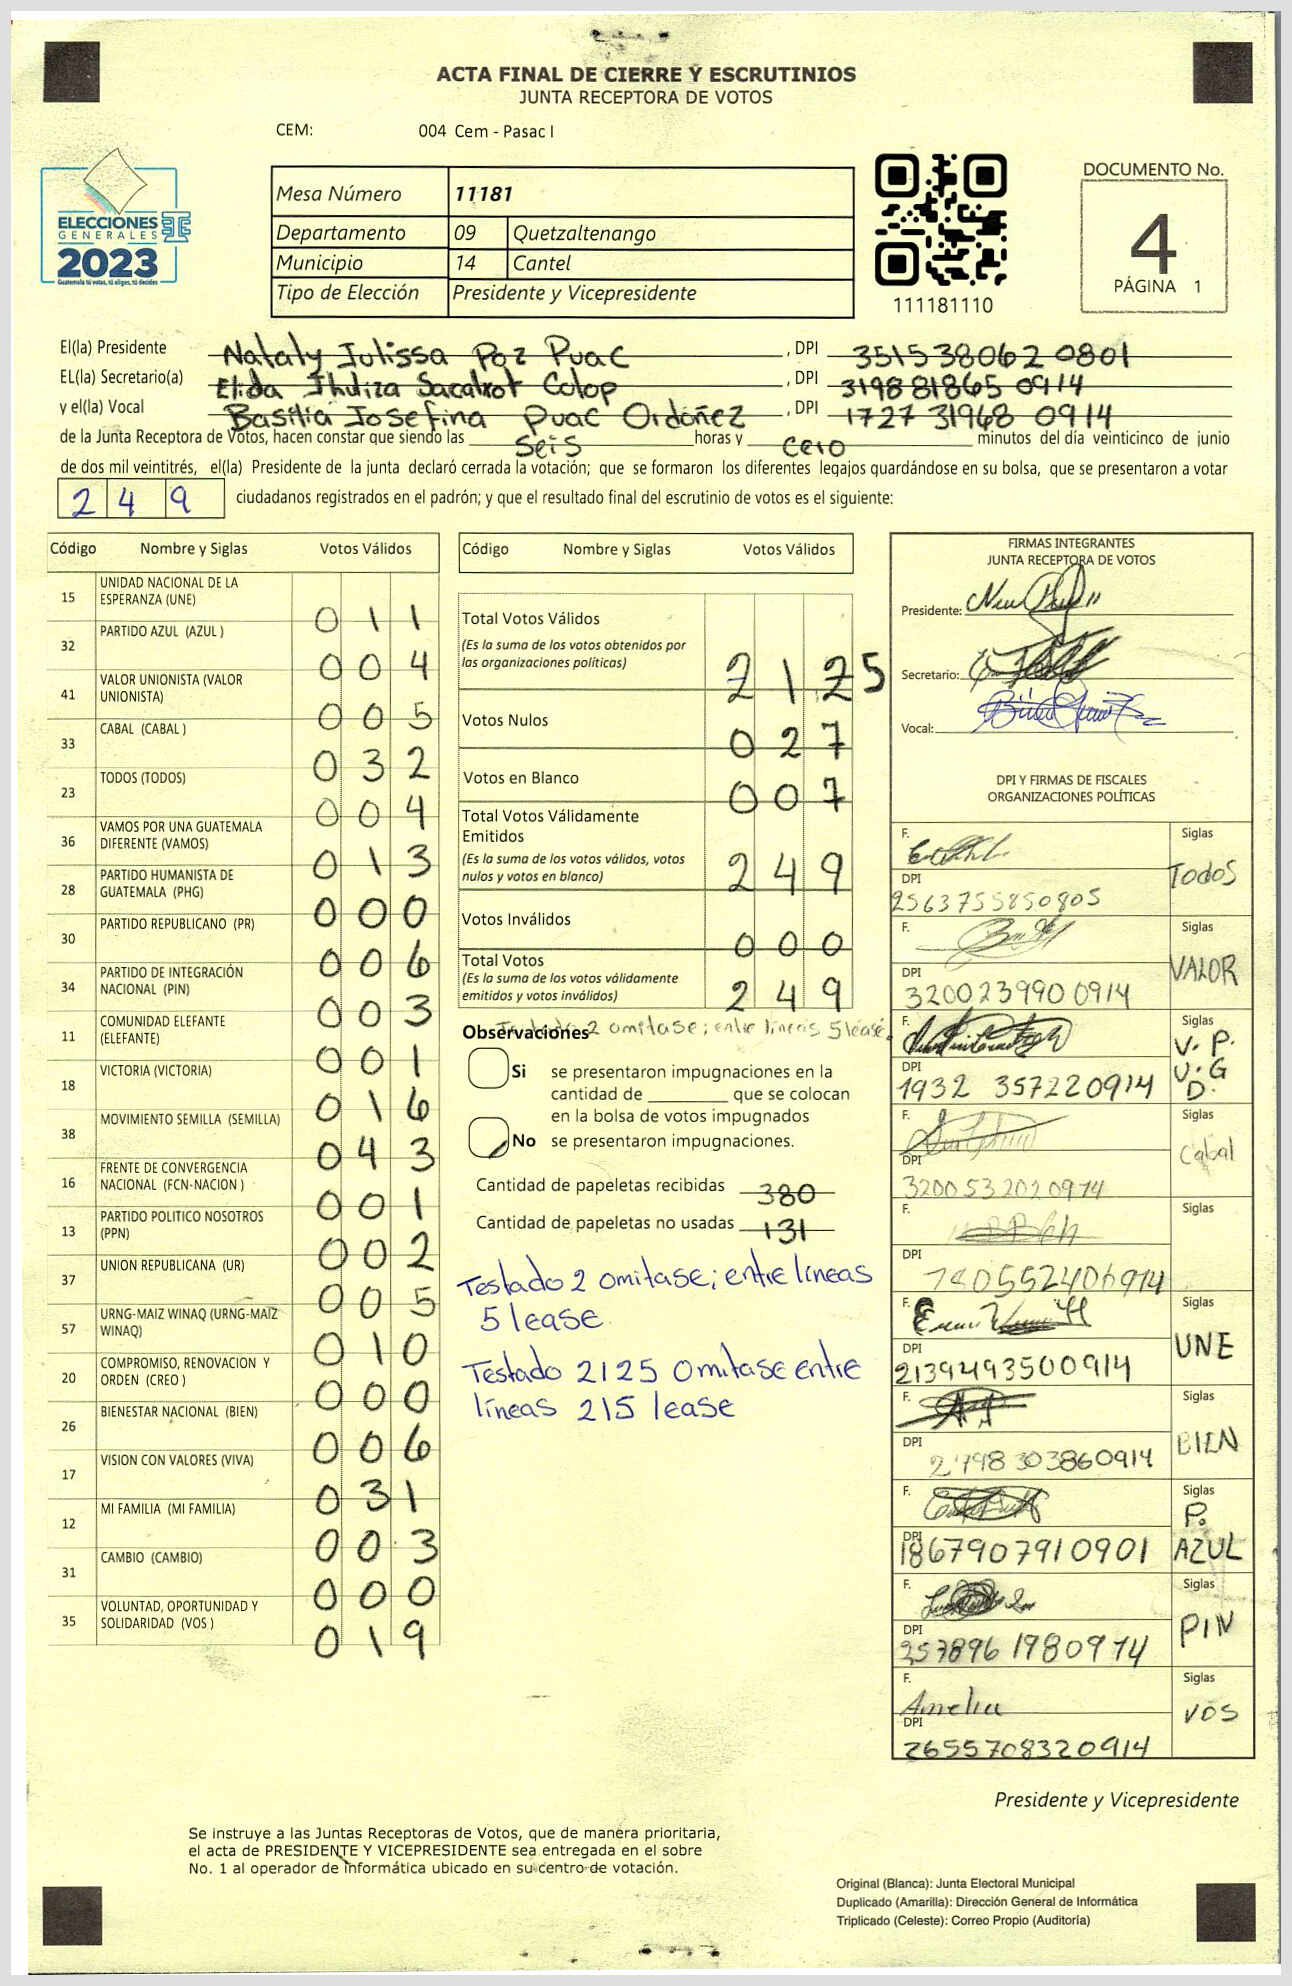 ACTA FINAL DE CIERRE Y ESCRUTINIOS
JUNTA RECEPTORA DE VOTOS
CEM: 004 Cem - Pasac I
ELECCIONES
GENERALES
2023
Guatemala tú votas, tú eliges, tú decides
Mesa Número 11181
Departamento 09 Quetzaltenango
Municipio 14 Cantel
Tipo de Elección Presidente y Vicepresidente
111181110
DOCUMENTO No.
4
PÁGINA 1
El(la) Presidente Nataly Julissa Poz Puac, DPI 351538062 0801
EL(la) Secretario(a) Elida Jhuliza Sacalxot Colop, DPI 319881865 0914
y el(la) Vocal Basilia Josefina Puac Ordóñez, DPI 1727 31968 0914
de la Junta Receptora de Votos, hacen constar que siendo las seis horas y cero minutos del día veinticinco de junio
de dos mil veintitrés, el(la) Presidente de la junta declaró cerrada la votación; que se formaron los diferentes legajos guardándose en su bolsa, que se presentaron a votar
249 ciudadanos registrados en el padrón; y que el resultado final del escrutinio de votos es el siguiente:
Código Nombre y Siglas Votos Válidos
15 UNIDAD NACIONAL DE LA ESPERANZA (UNE) 011
32 PARTIDO AZUL (AZUL ) 004
41 VALOR UNIONISTA (VALOR UNIONISTA) 005
33 CABAL (CABAL ) 032
23 TODOS (TODOS) 004
36 VAMOS POR UNA GUATEMALA DIFERENTE (VAMOS) 013
28 PARTIDO HUMANISTA DE GUATEMALA (PHG) 000
30 PARTIDO REPUBLICANO (PR) 006
34 PARTIDO DE INTEGRACIÓN NACIONAL (PIN) 003
11 COMUNIDAD ELEFANTE (ELEFANTE) 001
18 VICTORIA (VICTORIA) 016
38 MOVIMIENTO SEMILLA (SEMILLA) 043
16 FRENTE DE CONVERGENCIA NACIONAL (FCN-NACION ) 001
13 PARTIDO POLITICO NOSOTROS (PPN) 002
37 UNION REPUBLICANA (UR) 005
57 URNG-MAIZ WINAQ (URNG-MAIZ WINAQ) 010
20 COMPROMISO, RENOVACION Y ORDEN (CREO ) 000
26 BIENESTAR NACIONAL (BIEN) 006
17 VISION CON VALORES (VIVA) 031
12 MI FAMILIA (MI FAMILIA) 003
31 CAMBIO (CAMBIO) 000
35 VOLUNTAD, OPORTUNIDAD Y SOLIDARIDAD (VOS ) 019
Código Nombre y Siglas Votos Válidos
Total Votos Válidos 2125
(Es la suma de los votos obtenidos por
las organizaciones políticas)
Votos Nulos 027
Votos en Blanco 007
Total Votos Válidamente
Emitidos 249
(Es la suma de los votos válidos, votos
nulos y votos en blanco)
Votos Inválidos 000
Total Votos 249
(Es la suma de los votos válidamente
emitidos y votos inválidos)
Observaciones Testado 2 omitase; entre lineas 5 léase.
Si se presentaron impugnaciones en la
cantidad de ________ que se colocan
en la bolsa de votos impugnados
No se presentaron impugnaciones.
Cantidad de papeletas recibidas 380
Cantidad de papeletas no usadas 131
Testado 2 omitase; entre líneas
5 lease
Testado 2125 Omitase entre
líneas 215 lease
FIRMAS INTEGRANTES
JUNTA RECEPTORA DE VOTOS
Presidente:
Secretario:
Vocal:
DPI Y FIRMAS DE FISCALES
ORGANIZACIONES POLÍTICAS
F. Siglas
TODOS
DPI
2563755850805
F. Siglas
VALOR
DPI
320023990 0914
F. Siglas
V. P.
U. G
D.
DPI
1932 357220914
F. Siglas
Cabal
DPI
3200532020914
F. Siglas
DPI
F. Siglas
UNE
DPI
2139493500914
F. Siglas
BIEN
DPI
2798303860914
F. Siglas
P.
AZUL
DPI
1867907910901
F. Siglas
PIN
DPI
257896 1980914
F. Amelia Siglas
VOS
DPI
2655708320914
Presidente y Vicepresidente
Se instruye a las Juntas Receptoras de Votos, que de manera prioritaria,
el acta de PRESIDENTE Y VICEPRESIDENTE sea entregada en el sobre
No. 1 al operador de informática ubicado en su centro de votación.
Original (Blanca): Junta Electoral Municipal
Duplicado (Amarilla): Dirección General de Informática
Triplicado (Celeste): Correo Propio (Auditoría)